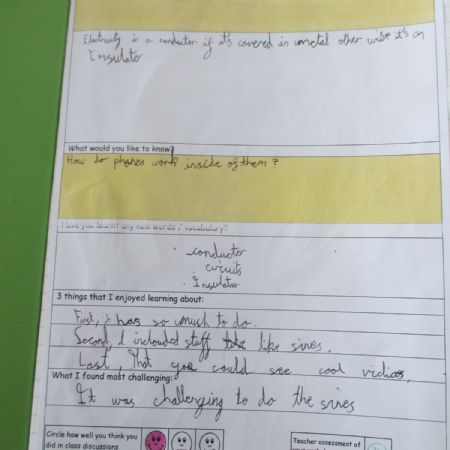 Electricity is a conductor if it's covered in metal other wise it's an
Insulator
What would you like to know?
How do phones work inside of them?
Have you learnt any new words / vocabulary?
conductor
circuits
Insulator
3 things that I enjoyed learning about:
First, it has so much to do.
Second, I inclouded stuff like sires.
Last, That you could see cool vidios,
What I found most challenging:
It was challenging to do the sires
Circle how well you think you
did in class discussions
Teacher assessment of